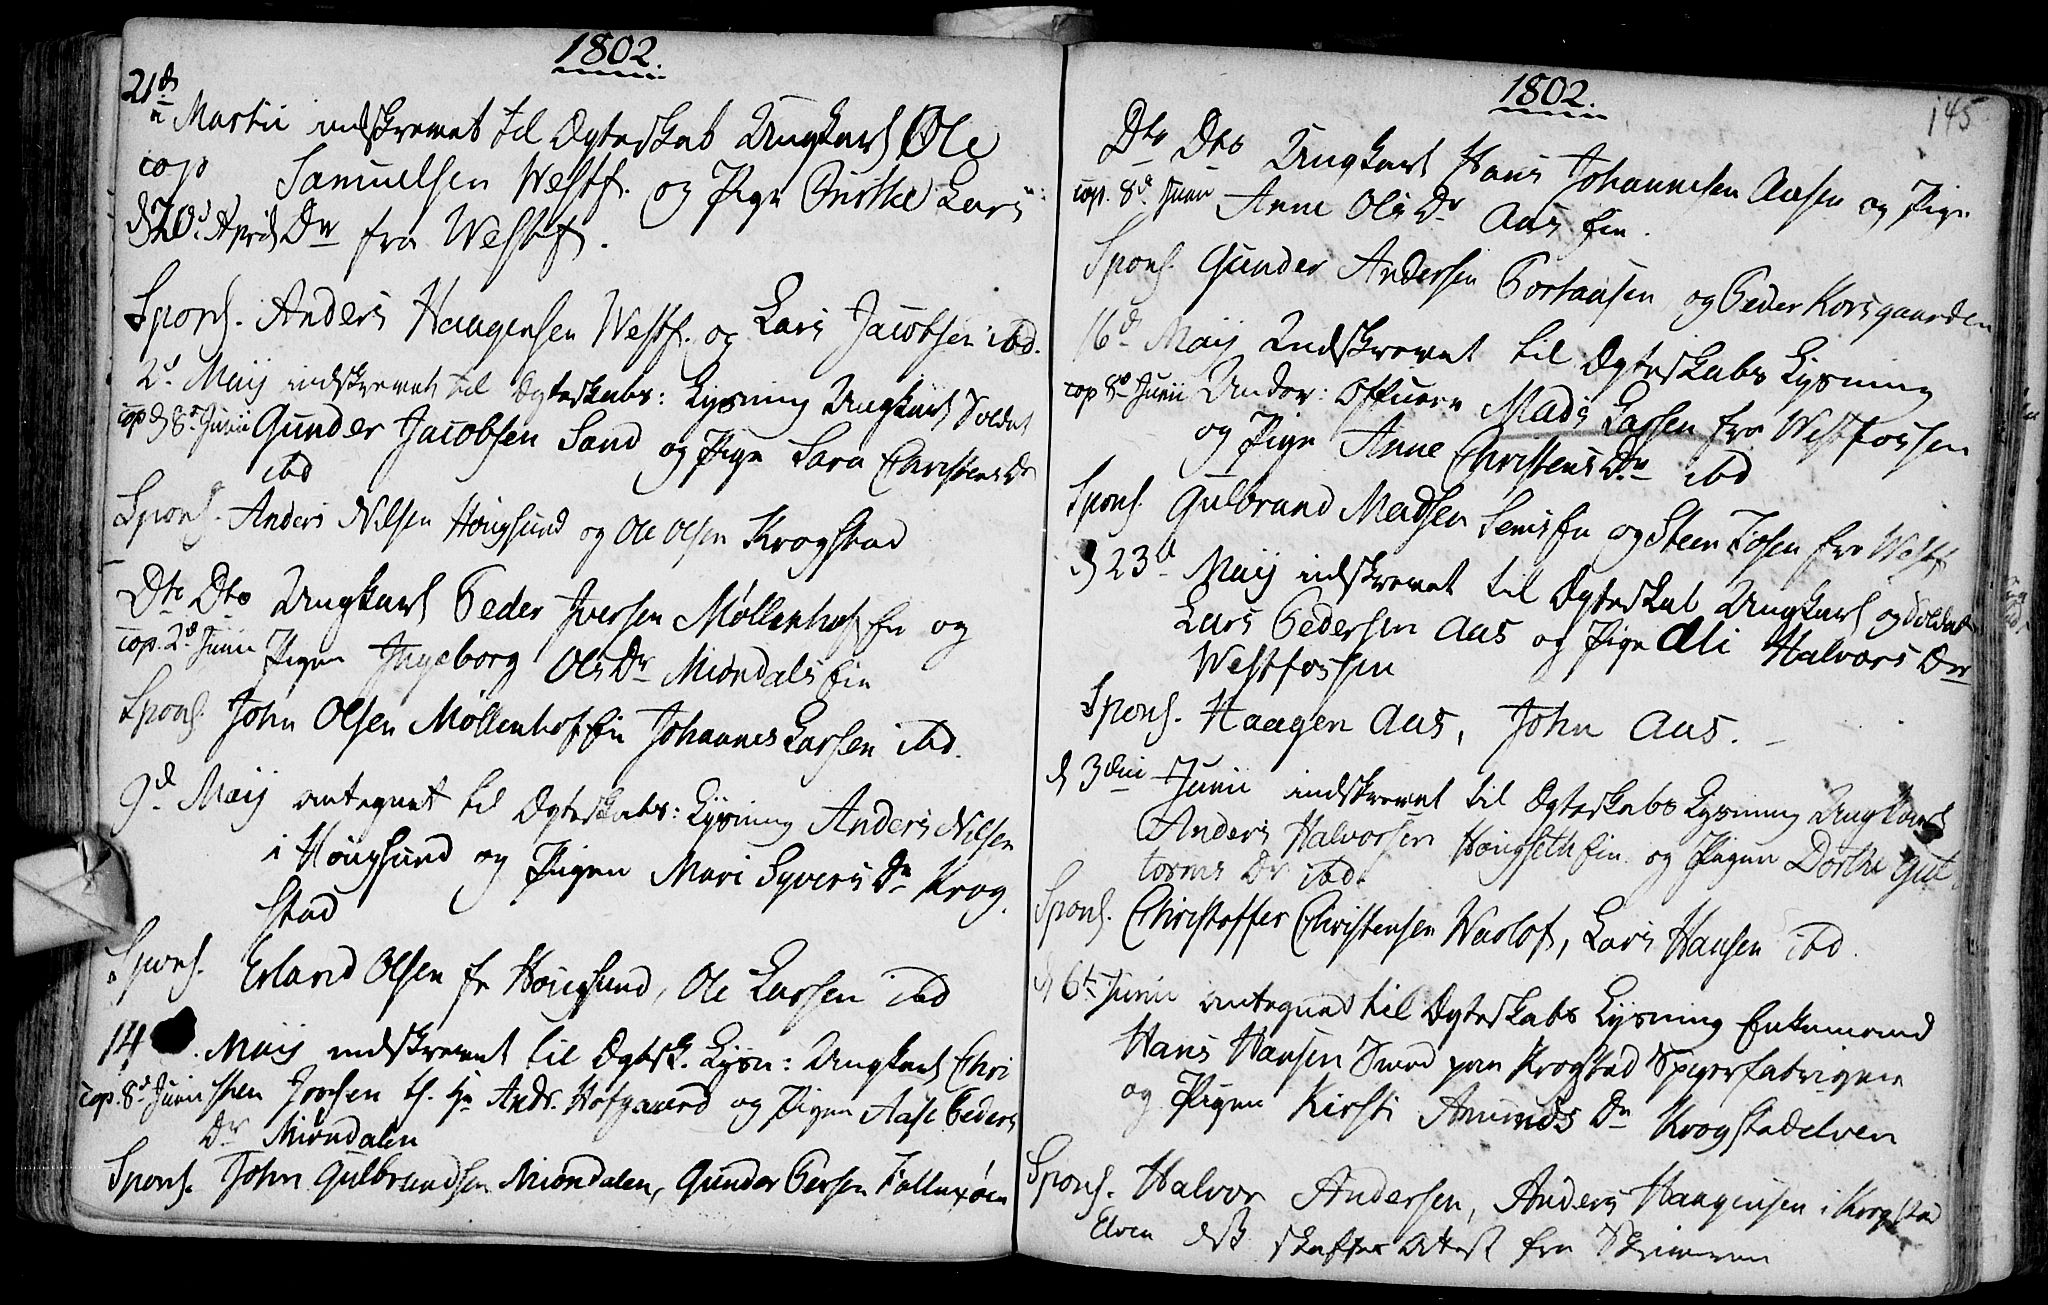 1802.
21d
Martii indskrevet til Ægteskab Ungkarl Ole
cop Samuelsen Westf. og Pige Lars
d 20d April Dr fra Westf.
Spons. Anders Haagensen Westf. og Lars Jacobsen ibd.
2d Maij indskrevet til Ægteskabs: Lysning Ungkarl Soldat
cop d 8d Junii Gunder Jacobsen Sand og Pige Sara Christens Dr
ibd
Spons. Anders Nilsen Hougsund og Ole Olsen Krogstad
Dto Dto Ungkarl Peder Iversen Møllenhof Eie og
cop. 2d Junii Pigen Ingeborg Ols Dr Miøndals Eie
Spons. John Olsen Møllenhof Eie Johannes Larsen ibd.
9d Maij antegnet til Ægteskabs: Lysning Anders Nilsen
i Hougsund og Pigen Mari Syvers Dr Krog
stad
Spons. Erland Olsen fr Hougsund, Ole Larsen ibd
14 Maij indskrevet til Ægtesk. Lysn: Ungkarl Chri
cop. 8d Junii sten Joersen Andr. Hofgaard og Pigen Aase Peders
Dr Miøndalen
Spons. John Gulbrandsen Miøndalen, Gunder Persen
1802.
145
Dto Dto Ungkarl Hans Johannesen Aasen og Pige
cop. 8d Junii Anne Ols Dr Aas Eie.
Spons. Gunder Andersen og Peder Korsgaarden
16d Maij Indskrevet til Ægteskabs Lysning
cop 8d Junii Under: Officere Mads Larsen fra Westfossen
og Pige Anne Christens Dr ibd
Spons. Gulbrand Madsen Sems Eie og Steen fra Westf
d 23d Maij indskrevet til Ægteskab Ungkarl og Soldat
Lars Pedersen Aas og Pige Eli Halvors Dr
Westfossen
Spons. Haagen Aas, John Aas.
d 3die Junii indskrevet til Ægteskabs Lysning Ungkarl
Anders Halvorsen Hougseth Eie og Pigen Dorthe Gut
torms Dr ibd.
Spons. Christoffer Christensen Warlof, Lars Hansen ibd.
d 6t Junii antegned til Ægteskabs Lysning Enkemand
Hans Hansen Smed paa Krogstad Spigerfabriqven
og Pigen Kirsti Amunds Dr Krogstadelven
Spons. Halvor Andersen, Anders Haagensen i Krogstad
Elven skaffer Attest fra Skriveren